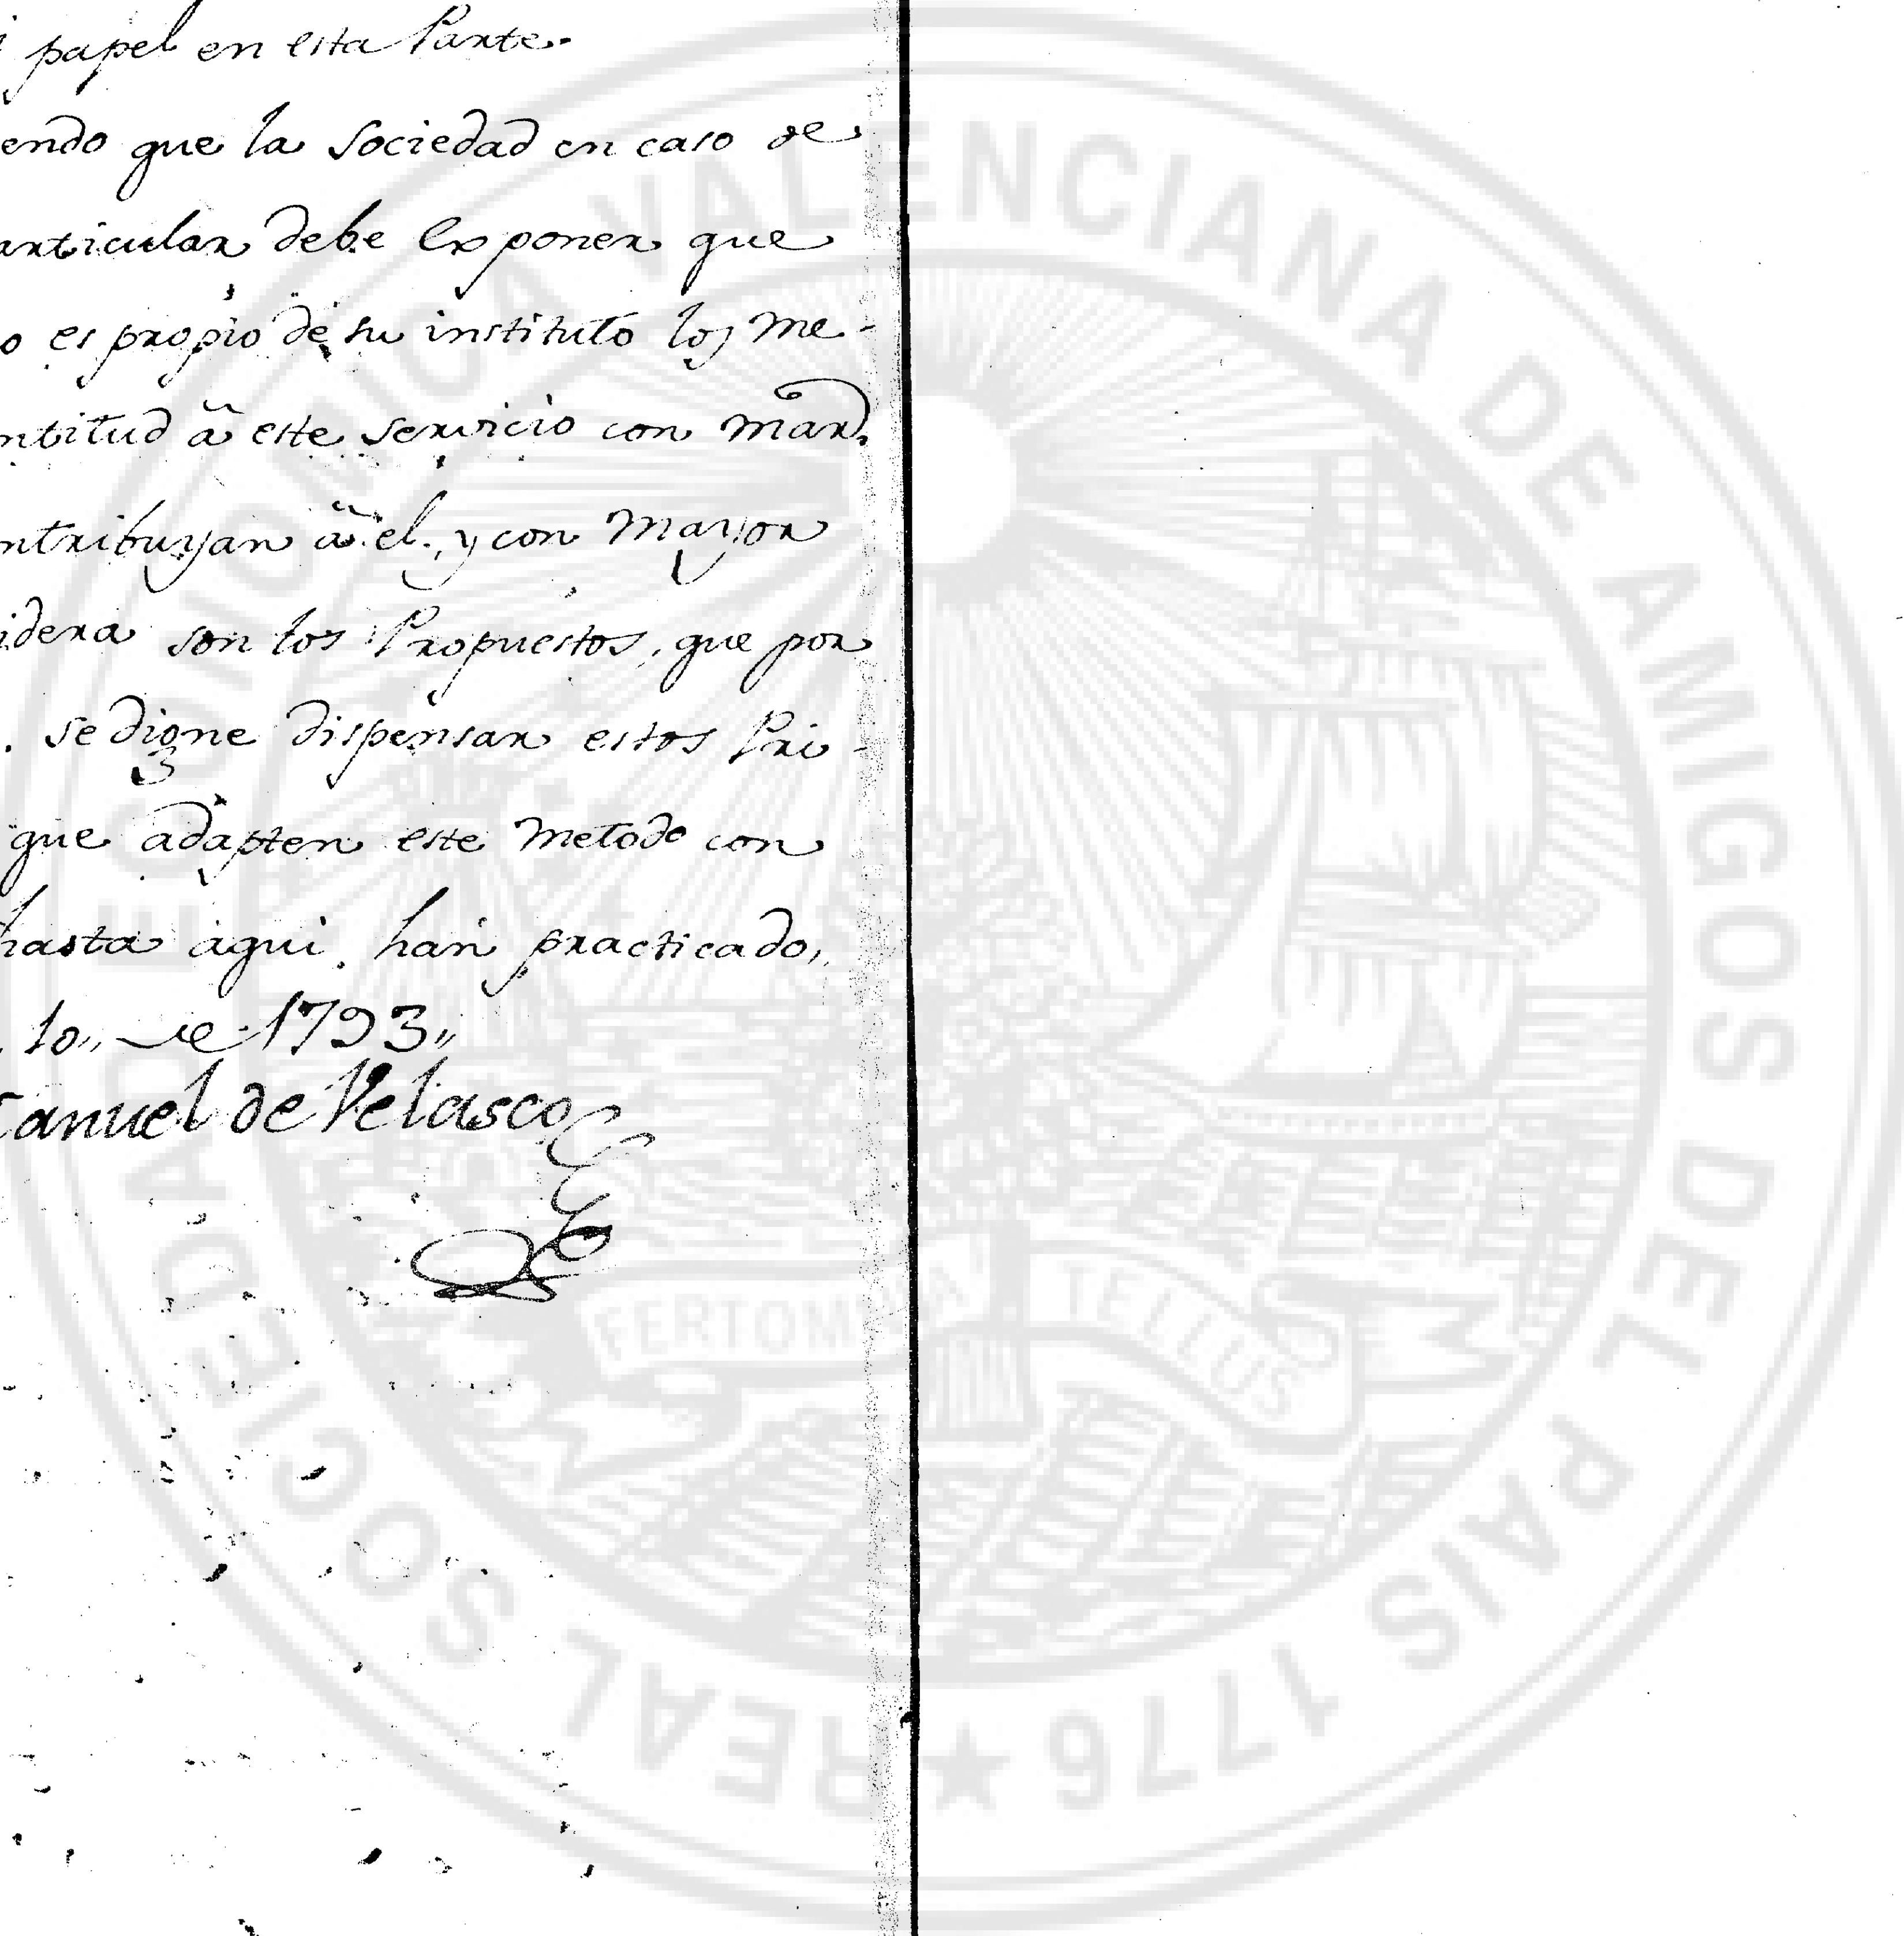 i papel en esta Parte.
endo que la Sociedad en caso de
articular debe exponer que
o es propio de su instituto los me-
ntitud â este servicio con mar.
ntribuyan â el, y con Mayor
idera son los Propuestos, que por
. se digne dispensar estos Pri-
que adapten este Metodo con
hasta aqui han practicado,,
10,, de 1793,,
anuel de Velasco
REAL SOCIEDAD ECONOMICA VALENCIANA DE AMIGOS DEL PAIS 1776
FERTOM TELLUS